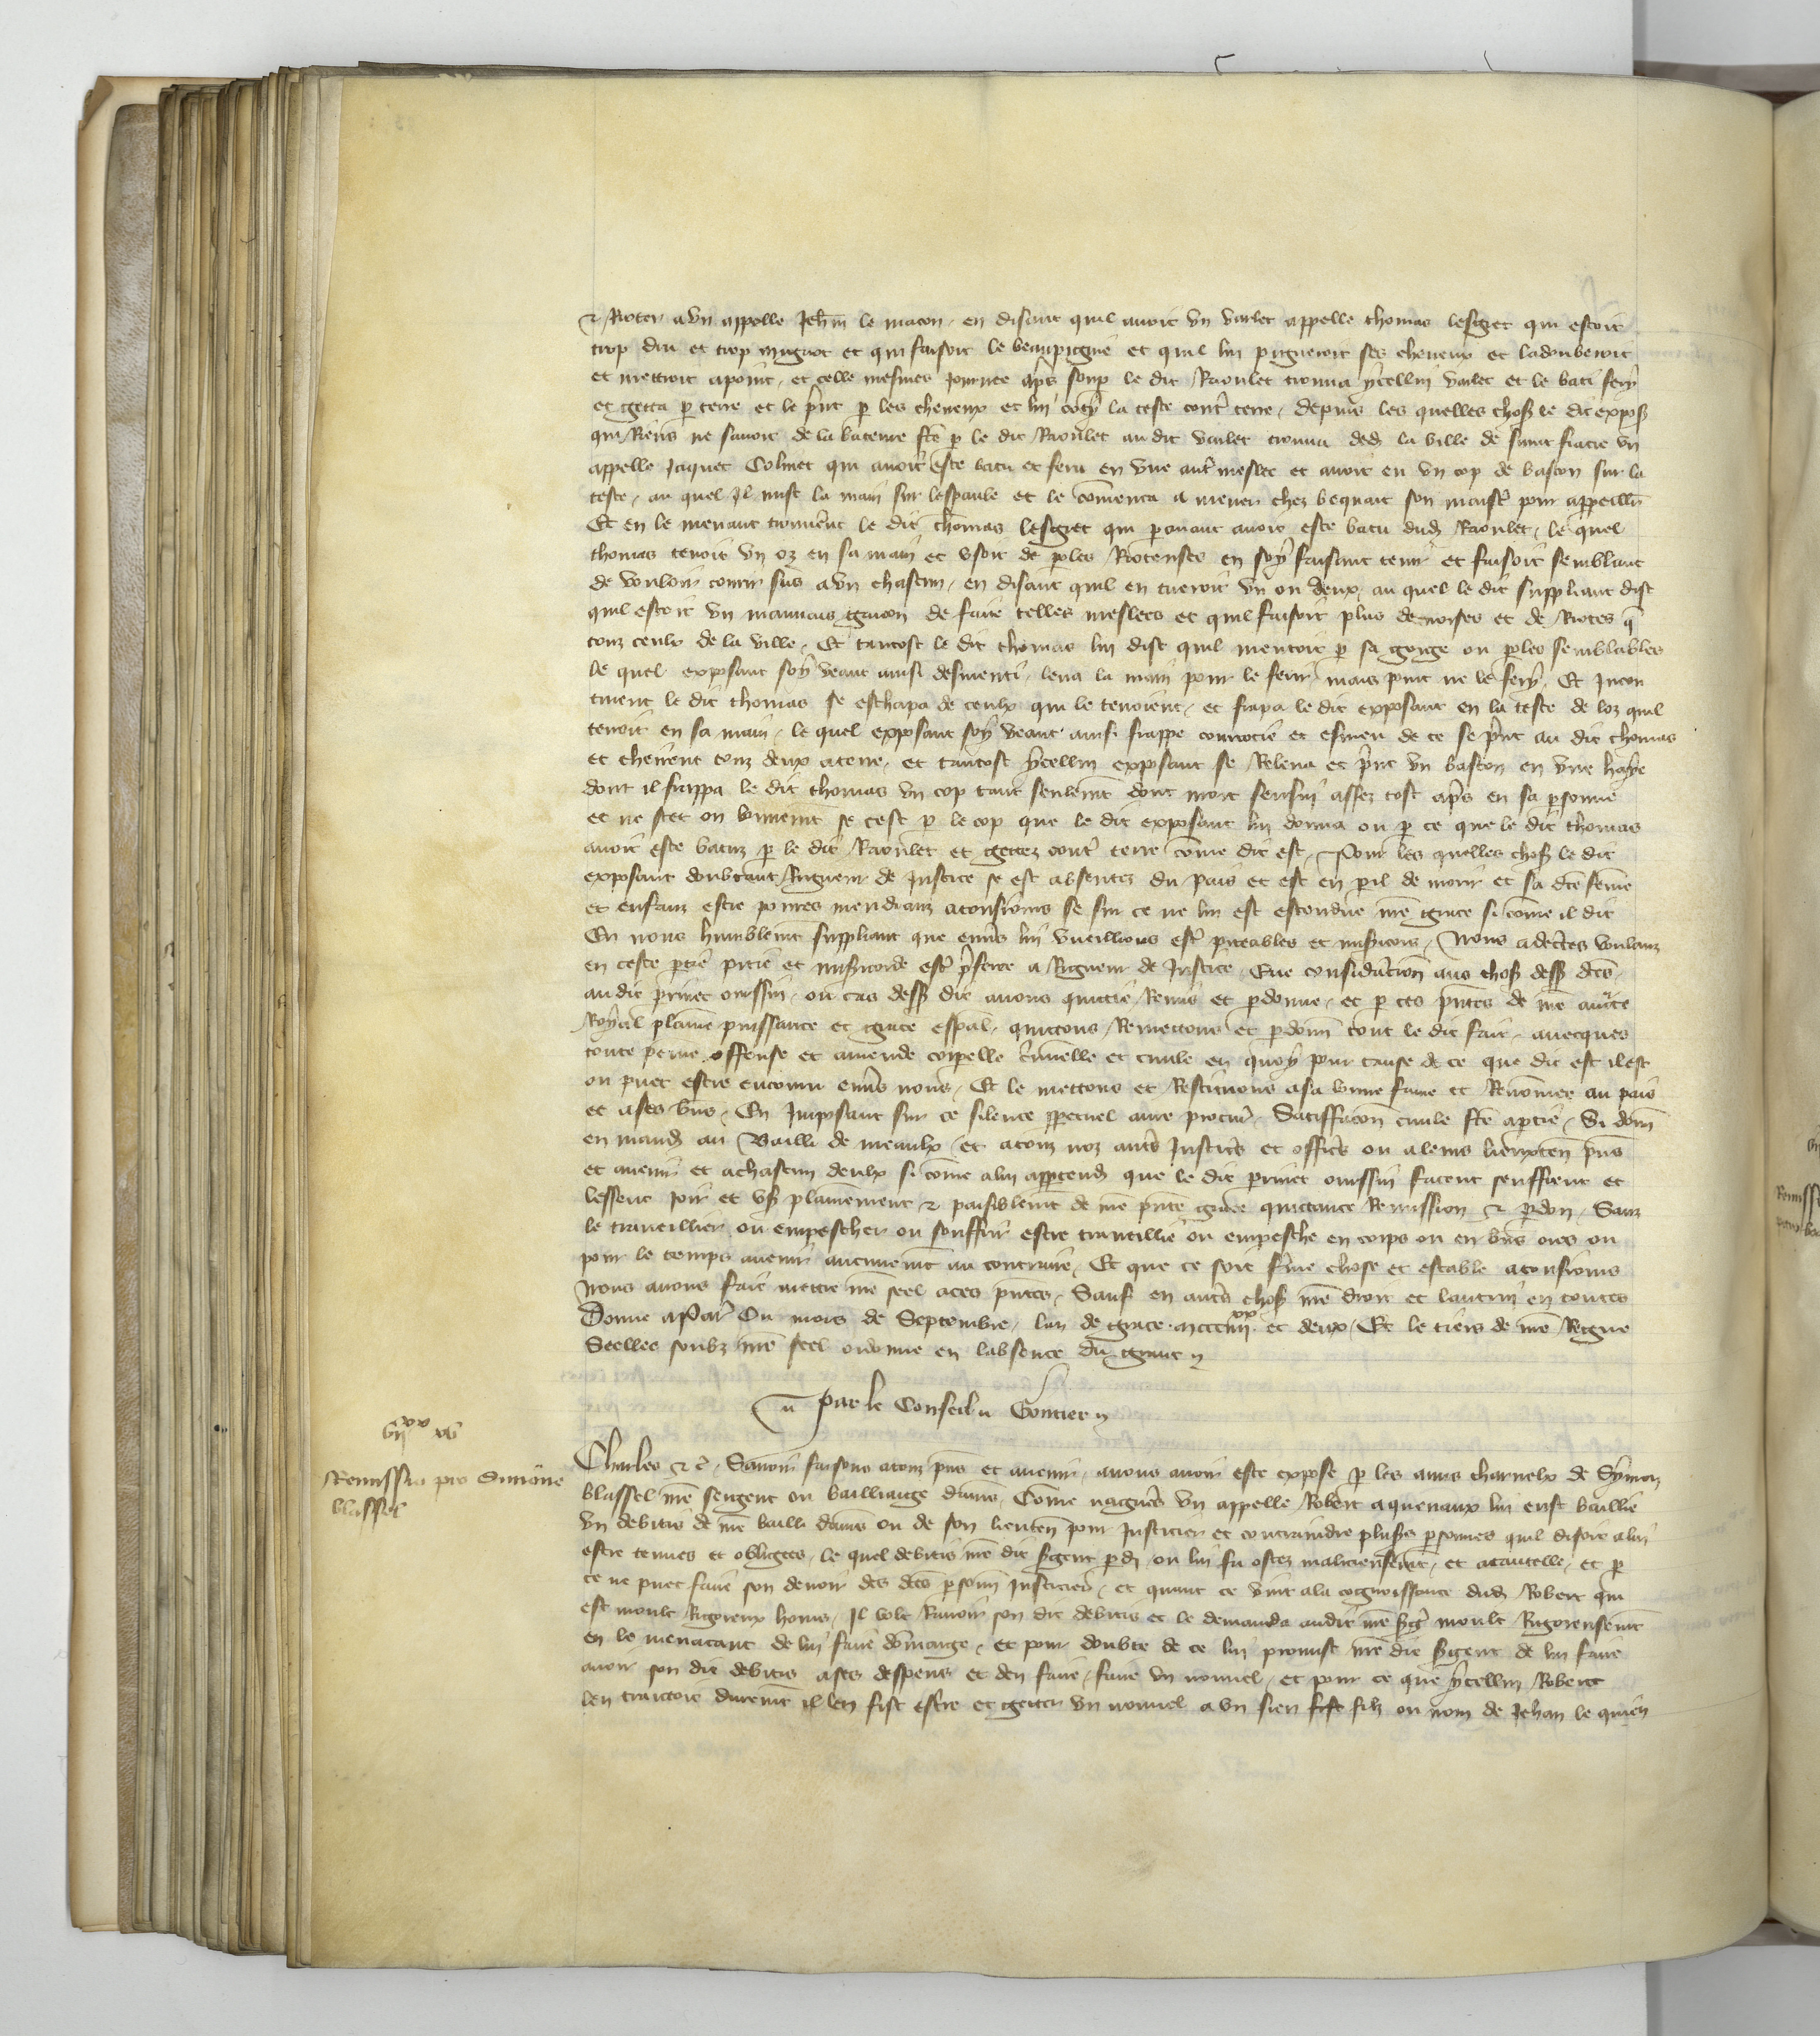 & Rioter a un appelle Jehan le macon, en disant quil avoit un varlet appelle thomas lesgret qui estoit
trop dru et trop mignot et qui faisoit le beaupigne et quil lui pigneroit ses cheveux et ladouberoit
et mettroit apoint, et celle mesmes journee aps soup le dit Raoulet trouva ycellui varlet et le bati fery
et getta p terre et le print p les cheveux et lui coty la teste contre terre, depuis les quelles choses le dit expos
qui Riens ne savoit de la bateure fte p le dit Raoulet au dit varlet trouva ded la ville de saint fiacre un
appelle Jaquet Colinet qui avoit este batu et feru en une autre meslee et avoit eu un cop de baston sur la
teste, au quel Il mist la main sur lespaule et le comenca a mener chez bequait son maistre pour appeillier
Et en le menant trouverent le dit thomas lesgret qui pavant avoit este batu dud Raoulet, le quel
thomas tenoit un oz en sa main et usoit de poles Rioteuses en soy faisant tenir et faisoit semblant
de vouloir courir sus a un chascun, en disant quil en tueroit un ou deux, au quel le dit suppliant dist
quil estoit un mauvais garcon de faire telles meslees et quil faisoit plus de noises et de Riotes q
touz ceulx de la ville, Et tantost le dit thomas lui dist quil mentoit p sa gorge ou poles semblables
le quel exposant soy veant ainsi desmenti, leva la main pour le ferir, mais point ne le fery, Et Incon
tinent le dit thomas se eschapa de ceulx qui le tenoient, et frapa le dit exposant en la teste de loz quil
tenoit en sa main, le quel exposant soy veant ainsi frappe courrocie et esmeu de ce se print au dit thomas
et cheirent touz deux a terre, et tantost ycellui exposant se Releva et print un baston en une haye
dont il frappa le dit thomas un cop tant seulemt dont mort sensui assez tost aps en sa psonne
et ne scet on bonnemt se cest p le cop que le dit exposant lui donna ou p ce que le dit thomas
avoit este batuz p le dit Raoulet et gettez contre terre come dit est, Pour les quelles choses le dit
exposant doubtant Rigueur de Justice se est absentez du pais et est en pil de morir et sa dte feme
et enfanz estre povres mendianz atousiours se sur ce ne lui est estendue nre grace si come il dit
En nous humblemt suppliant que envs lui vueillions estre piteables et misicors, Nous adectes voulanz
en ceste ptie pitie et misicorde estre pferee a Rigueur de Justice, Eue consideracion aus choses dess dctes
au dit prinet oussin, ou cas dess dit avons quittie Remis et pdonne, et p ces pntes de nre aucte
Royal plaine puissance et grace espal, quittons Remettons et pdonn tout le dit fait, avecques
toute peine offense et amende corpelle crimelle et civile en quoy pour cause de ce que dit est il est
ou puet estre encouru envs nous, Et le mettons et Restituons a sa bonne fame et Renomee au pais
et a ses biens, En Imposant sur ce silence ppetuel a nre procur, Satisffacon civile fte a ptie, Si donn
en mand au Bailli de meaulx, et a touz noz autrs Justics et offics ou a leurs lieuxten pns
et avenir et a chascun deulx si come a lui apptendra que le dit prinet oussin facent seuffrent et
lessent joir et usr plainement & paisiblemt de nre pnte grace quittance Remission & pdon, Sanz
le traveillier ou empeschier ou souffrir estre traveillie ou empeschie en corps ou en biens ores ou
pour le temps avenir aucunemt au contraire, Et que ce soit ferme chose et estable atousiours
Nous avons fait mettre nre seel a ces pntes, Sauf en autrs choses nre droit et lautrui en toutes
Donne a Par Ou mois de Septembre, lan de grace mccciiiixx et deux, Et le tiers de nre Regne
Seellee soubz nre seel ordonne en labsence du grant
Par le Conseil Gontier
viixx xv
Remissio pro Simone
blassel
Charles & c, Savoir faisons atouz pns et avenir, a nous avoir este expose p les amis charnelx de Symon
blassel nre sergent ou bailliaige damiens, Come nagueres un appelle Robert aquenaux lui eust baillie
un debitis de nre bailli damiens ou de son lieuten pour Justicier et contraindre pluss psonnes quil disoit a lui
estre tenues et obligees, le quel debitis nre dit sergent pdi, ou lui fu ostez malicieusemt, et a cautelle, et p
ce ne puet faire son devoir des dctes psonn Justicier, et quant ce vint a la cognoissance dud Robert qui
est moult Rigoreux homs, Il volt Ravoir son dit debitis et le demanda audit nre serg moult Rigoreusemt
en le menacant de lui faire domaige, et pour doubte de ce lui promist nre dit sergent de lui faire
avoir son dit debitis a ses despens et den faire faire un nouvel, et pour ce que ycellui Robert
len traictoit duremt il len fist escre et getter un nouvel a un sien filz ou nom de Jehan le quien